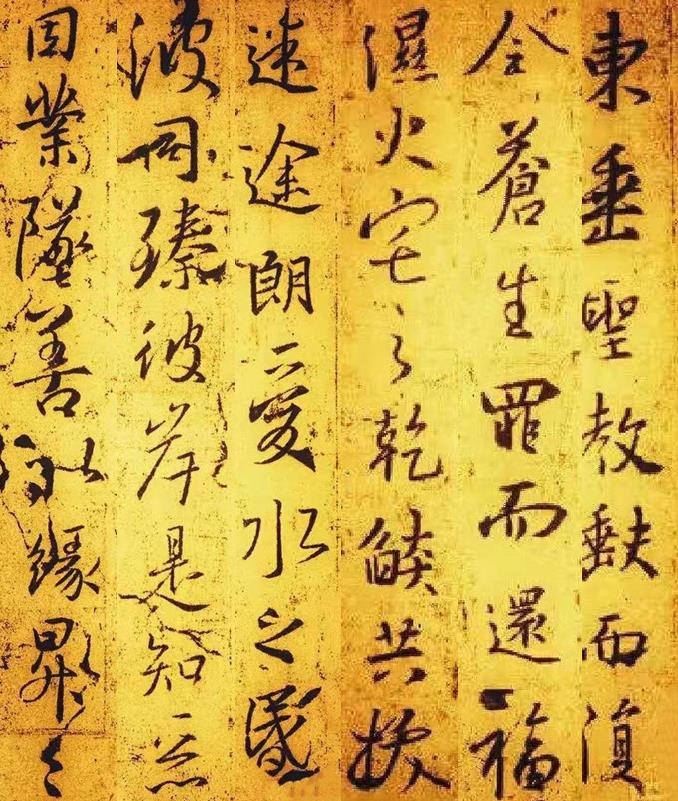 東垂聖教缺而復
全蒼生罪而還福
濕火宅之乾焰共拔
迷途朗愛水之昏
波同臻彼岸是知惡
因業墜善以緣昇〻